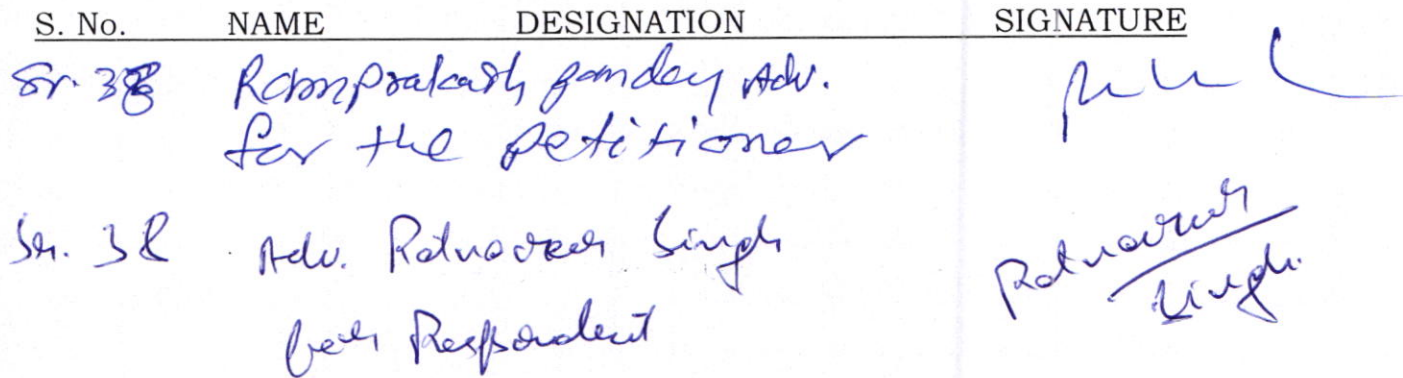 S. No. NAME DESIGNATION SIGNATURE
Sr. 38 Ramprakash pandey Adv.
for the petitioner
Sr. 38 Adv. Ratnaveer Singh
for Respondent
Ratnaveer
Singh